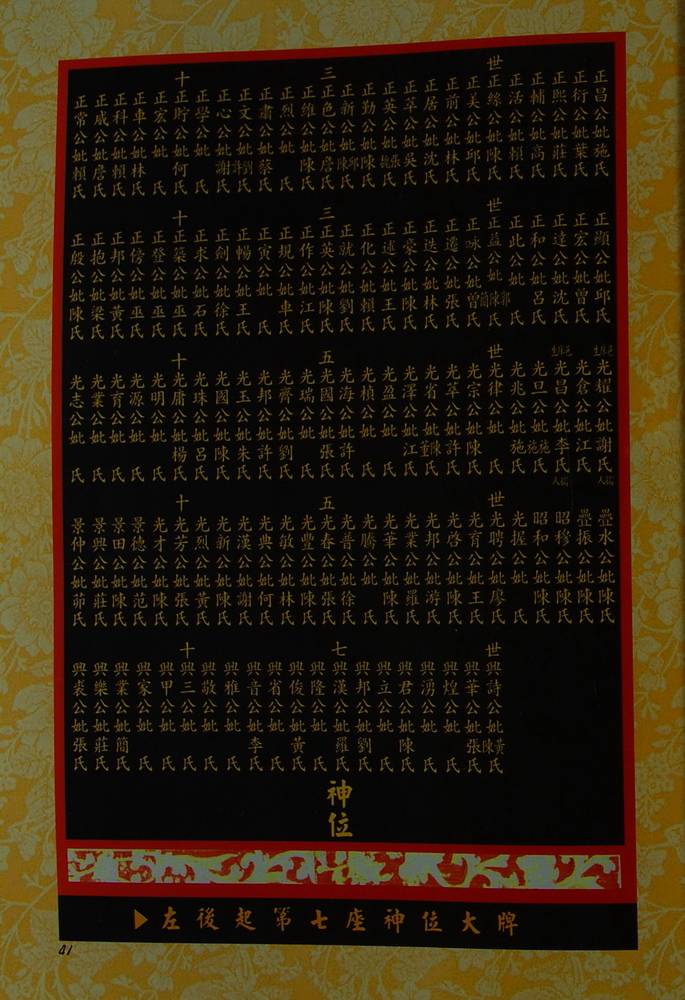 十三世
正常公妣賴氏
正威公妣詹氏
正科公妣賴氏
正車公妣林氏
正宏公妣氏
正貯公妣何氏
正學公妣氏
正心公妣謝氏
正文公妣許劉氏
正肅公妣蔡氏
正烈公妣氏
正維公妣陳氏
正色公妣詹氏
正新公妣陳邱氏
正勤公妣陳氏
正英公妣魏張氏
正萃公妣吳氏
正居公妣沈氏
正前公妣林氏
正美公妣邱氏
正綠公妣陳氏
正活公妣賴氏
正輔公妣高氏
正熙公妣莊氏
正衍公妣葉氏
正昌公妣施氏
十三世
正殷公妣陳氏
正抱公妣梁氏
正邦公妣黃氏
正傍公妣巫氏
正登公妣巫氏
正榮公妣巫氏
正求公妣石氏
正劍公妣徐氏
正暢公妣王氏
正寅公妣氏
正規公妣車氏
正作公妣江氏
正英公妣陳氏
正就公妣劉氏
正化公妣賴氏
正述公妣王氏
正豪公妣陳氏
正迭公妣林氏
正遷公妣張氏
正咏公妣曾氏
正益公妣簡陳郭氏
正此公妣氏
正和公妣呂氏
正達公妣沈氏
正宏公妣曾氏
正顯公妣邱氏
十五世
光志公妣氏
光業公妣氏
光育公妣氏
光源公妣氏
光明公妣氏
光庸公妣楊氏
光珠公妣呂氏
光國公妣陳氏
光玉公妣朱氏
光邦公妣許氏
光齊公妣劉氏
光瑞公妣氏
光國公妣張氏
光海公妣許氏
光楨公妣氏
光盈公妣氏
光澤公妣江氏
光省公妣董陳氏
光萃公妣許氏
光宗公妣陳氏
光律公妣氏
光兆公妣施氏
光旦公妣施施氏
光昌公妣李氏
光倉公妣江氏
光耀公妣謝氏
十五世
景仲公妣茆氏
景興公妣莊氏
景田公妣陳氏
景德公妣范氏
光才公妣陳氏
光芳公妣張氏
光烈公妣黃氏
光新公妣陳氏
光漢公妣謝氏
光典公妣何氏
光敏公妣林氏
光豐公妣陳氏
光春公妣張氏
光普公妣徐氏
光勝公妣氏
光華公妣陳氏
光業公妣羅氏
光邦公妣游氏
光啓公妣陳氏
光育公妣王氏
光聘公妣廖氏
光握公妣氏
昭和公妣陳氏
昭穆公妣陳氏
疊振公妣陳氏
疊水公妣陳氏
十七世
興裘公妣張氏
興樂公妣莊氏
興業公妣簡氏
興家公妣氏
興甲公妣氏
興三公妣氏
興敬公妣氏
興雅公妣氏
興音公妣李氏
興省公妣氏
興俊公妣黃氏
興隆公妣氏
興漢公妣羅氏
興邦公妣劉氏
興立公妣氏
興君公妣陳氏
興湧公妣氏
興煌公妣氏
興華公妣張氏
興詩公妣陳黃氏
神位
左後起第七座神位大牌
41